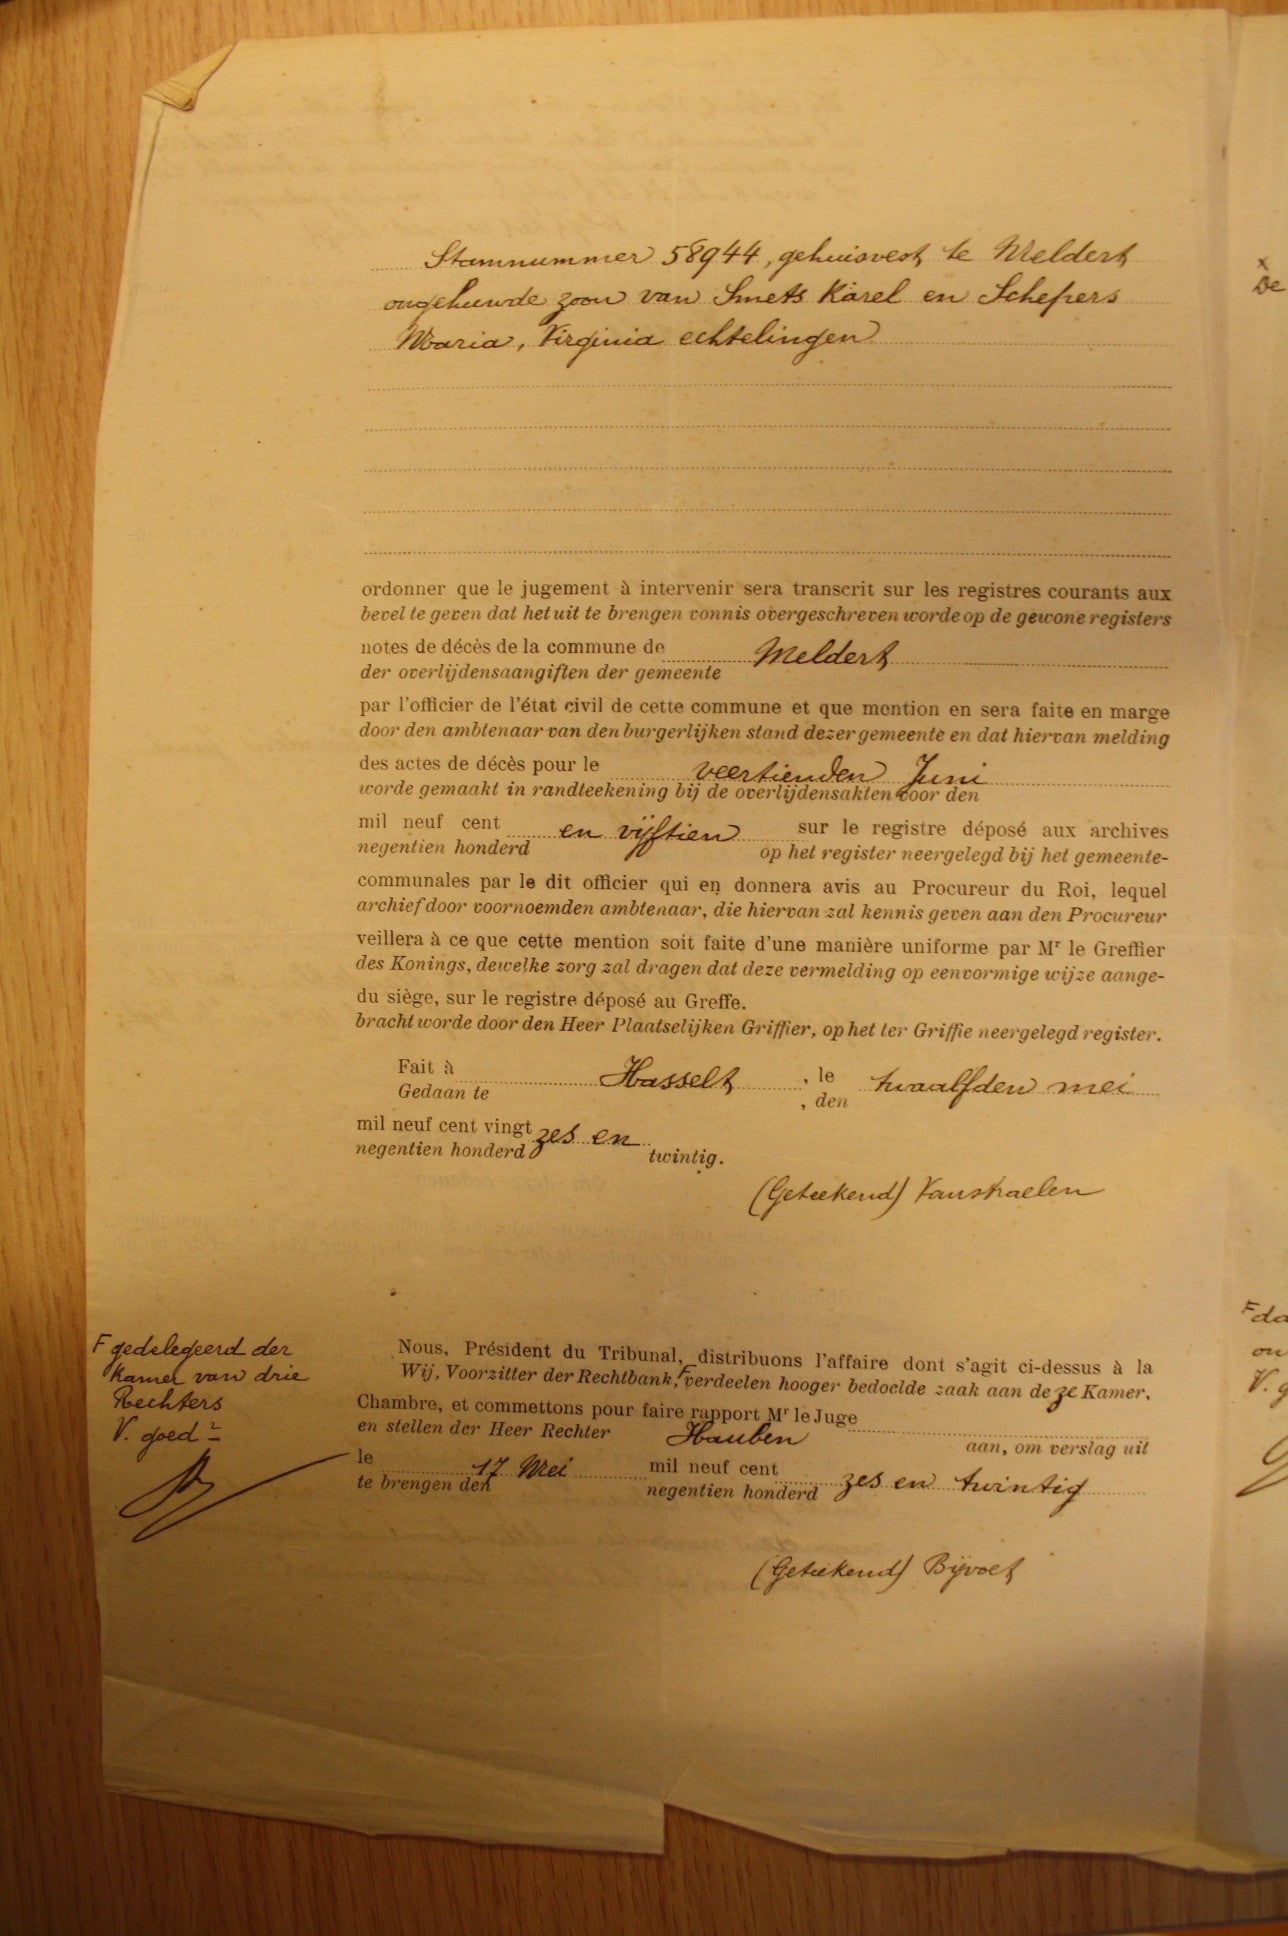 Stamnummer 58944, gehuisvest te Meldert
ongehuwde zoon van Smets Karel en Schepers
Maria, Virginia echtelingen
ordonner que le jugement à intervenir sera transcrit sur les registres courants aux
bevel te geven dat het uit te brengen vonnis overgeschreven worde op de gewone registers
notes de décès de la commune de Meldert
der overlijdensaangiften der gemeente
par l'officier de l'état civil de cette commune et que mention en sera faite en marge
door den ambtenaar van den burgerlijken stand dezer gemeente en dat hiervan melding
des actes de décès pour le veertienden Juni
worde gemaakt in randteekening bij de overlijdensakten voor den
mil neuf cent en vijftien sur le registre déposé aux archives
negentien honderd op het register neergelegd bij het gemeente-
communales par le dit officier qui en donnera avis au Procureur du Roi, lequel
archief door voornoemden ambtenaar, die hiervan zal kennis geven aan den Procureur
veillera à ce que cette mention soit faite d'une manière uniforme par Mr le Greffier
des Konings, dewelke zorg zal dragen dat deze vermelding op eenvormige wijze aange-
du siège, sur le registre déposé au Greffe.
bracht worde door den Heer Plaatselijken Griffier, op het ter Griffie neergelegd register.
Fait à Hasselt, le twaalfden mei
Gedaan te , den
mil neuf cent vingt zes en
negentien honderd twintig.
(Geteekend) Vanstraelen
F gedelegeerd der
Kamer van drie
Rechters
V. goed
Nous, Président du Tribunal, distribuons l'affaire dont s'agit ci-dessus à la
Wij, Voorzitter der Rechtbank, F verdeelen hooger bedoelde zaak aan de ze Kamer,
Chambre, et commettons pour faire rapport Mr le Juge
en stellen der Heer Rechter Hauben aan, om verslag uit
le 17 Mei mil neuf cent zes en twintig
te brengen den negentien honderd
(Geteekend) Bijvoet
x
De
F da
on
V. g